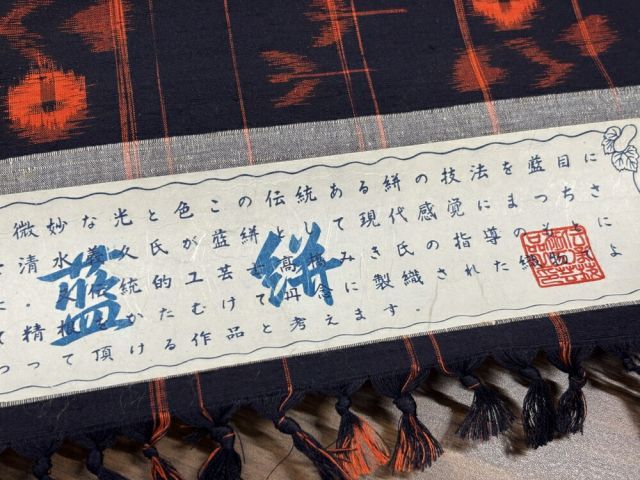 微妙な光と色この伝統ある絣の技法を藍目に
清水 久氏が藍絣として現代感覚にまっちさ
た・又伝統的工芸士高橋みき氏の指導のもと によ
て精根をかたむけて丹念に製織された織物
って頂ける作品と考えます.
藍絣